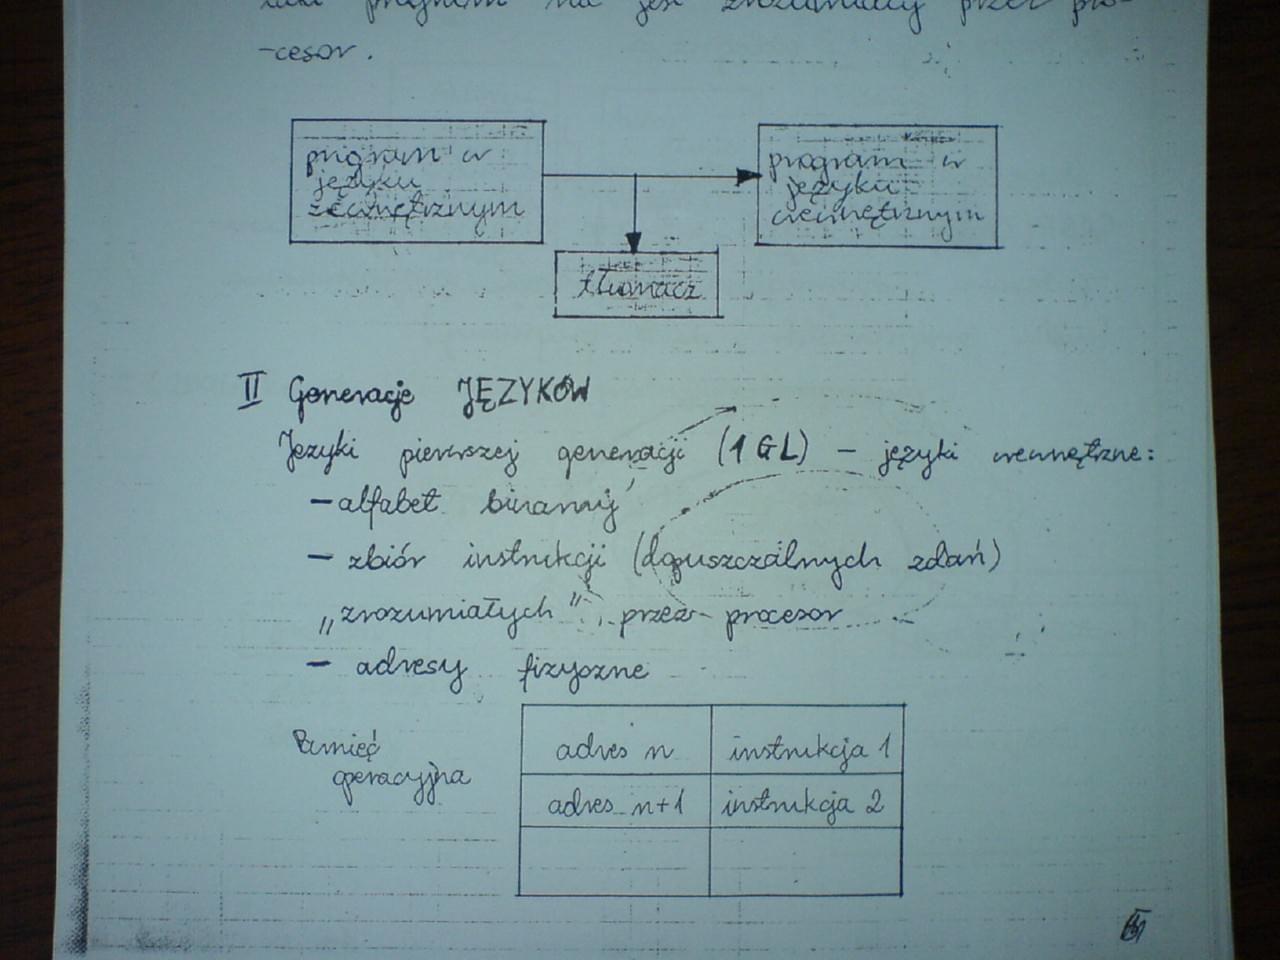 taki program nie jest zrozumiały przez pro-
-cesor.
program w
języku
zewnętrznym
program w
języku
wewnętrznym
tłumacz
II Generacje JĘZYKÓW
Języki pierwszej generacji (1GL) - języki wewnętrzne:
- alfabet binarny
- zbiór instrukcji (dopuszczalnych zdań)
„zrozumiałych" przez procesor
- adresy fizyczne
Pamięć
operacyjna
adres n instrukcja 1
adres n+1 instrukcja 2